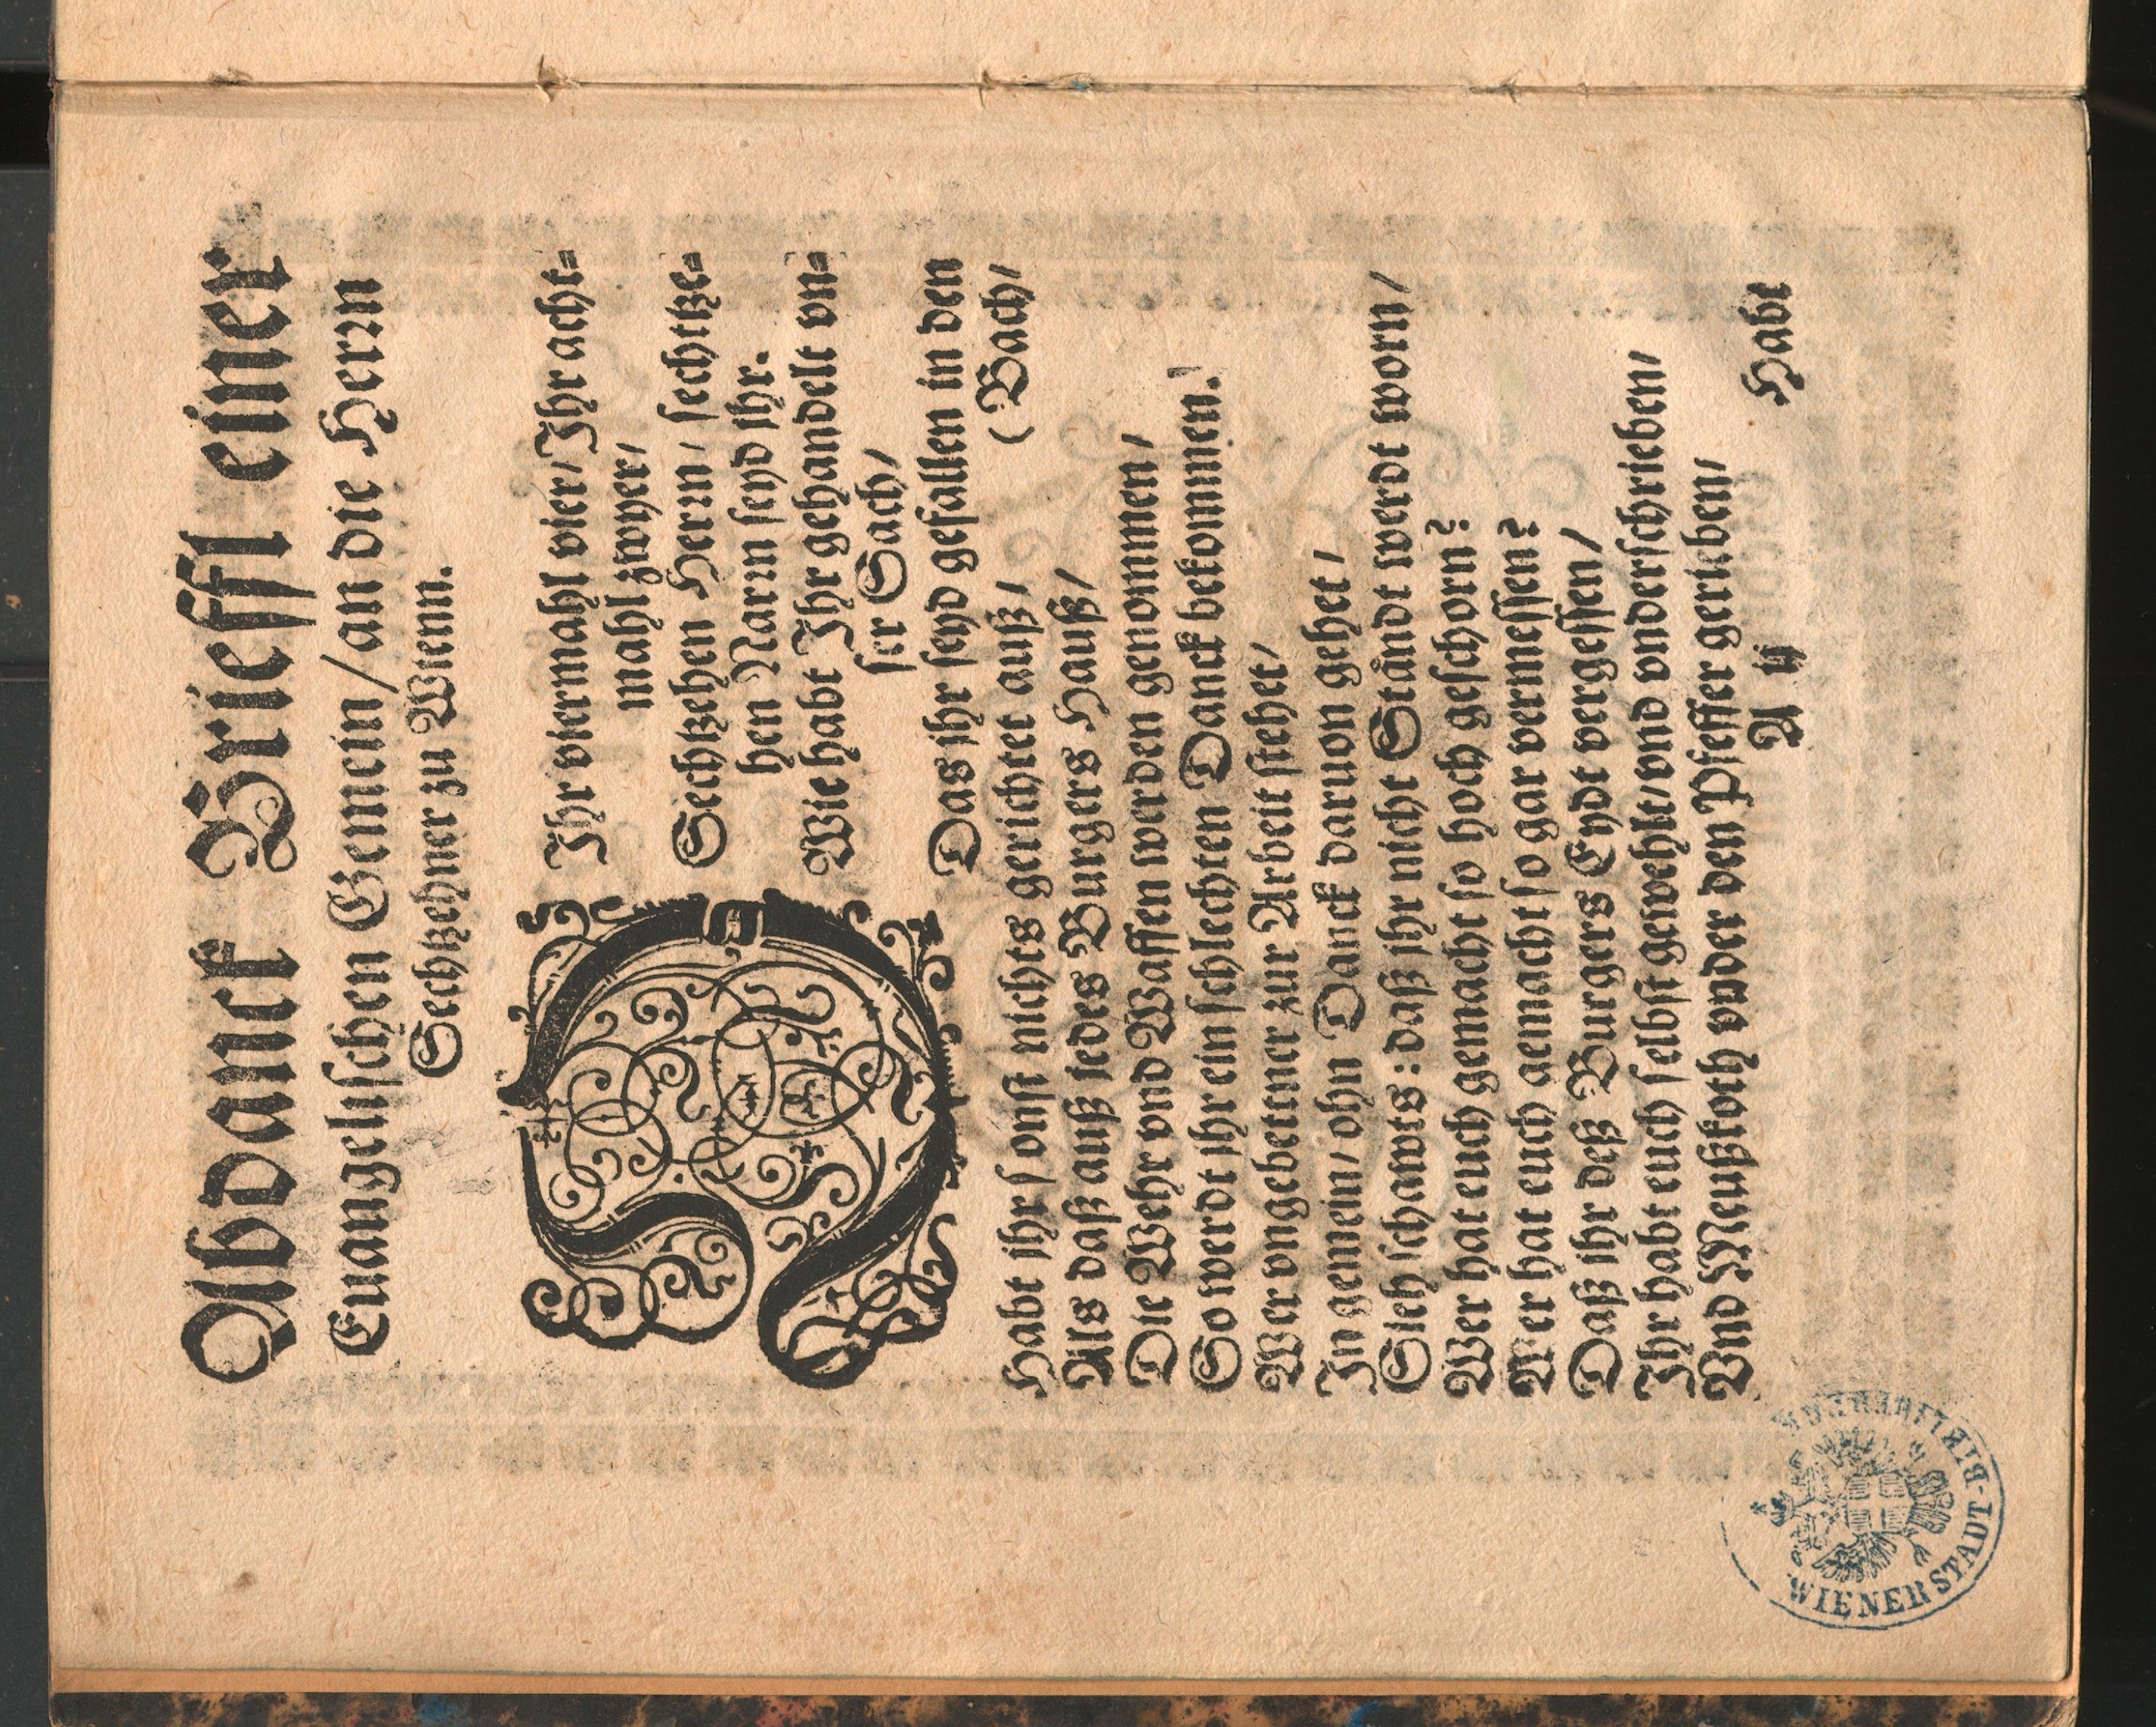 Abdanck Brieffl einer
Euangelischen Gemein/an die Herrn
Sechtzehner zu Wienn.
O Ihr viermahl vier/Ihr acht=
mahl zwyer/
Sechtzehen Herrn/ sechtze=
hen Narrn seyd ihr.
Wie habt Ihr gehandelt vn=
ser Sach/
Das ihr seyd gefallen in den
( Bach/
Habt ihr sonst nichts gerichtet auß/
Als daß auß jedes Burgers Hauß/
Die Wehr vnd Waffen werden genommen/
So werdt ihr ein schlechten Danck bekommen.
Wer vngebettner zur Arbeit stehet/
In gemein/ohn Danck daruon gehet/
Sieh schawts: daß ihr nicht Ståndt werdt worn/
Wer hat euch gemacht so hoch geschorn?
Wer hat euch gemacht so gar vermessen?
Daß ihr deß Burgers Eydt vergessen/
Ihr habt euch selbst gewehlt/vnd vnderschrieben/
Vnd Meußkoth vnder den Pfeffer gerieben/
A ij
Habt
WIENER STADT-BIBLIOTHEK